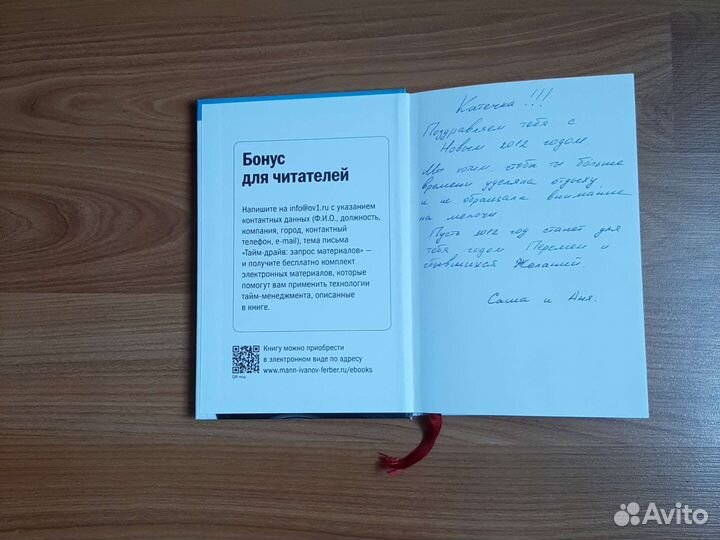 Бонус
для читателей
Напишите на info@ov1.ru с указанием
контактных данных (Ф.И.О., должность,
компания, город, контактный
телефон, e-mail), тема письма
«Тайм-драйв: запрос материалов» —
и получите бесплатно комплект
электронных материалов, которые
помогут вам применить технологии
тайм-менеджмента, описанные
в книге.
QR код
Книгу можно приобрести
в электронном виде по адресу
www.mann-ivanov-ferber.ru/ebooks
Катечка!!!
Поздравляем тебя с
Новым 2012 годом
Мы хотим, чтобы ты больше
времени уделяла отдыху
и не обращала внимание
на мелочи
Пусть 2012 год станет для
тебя годом Перемен и
сбывшихся Желаний.
Саша и Аня.
Avito